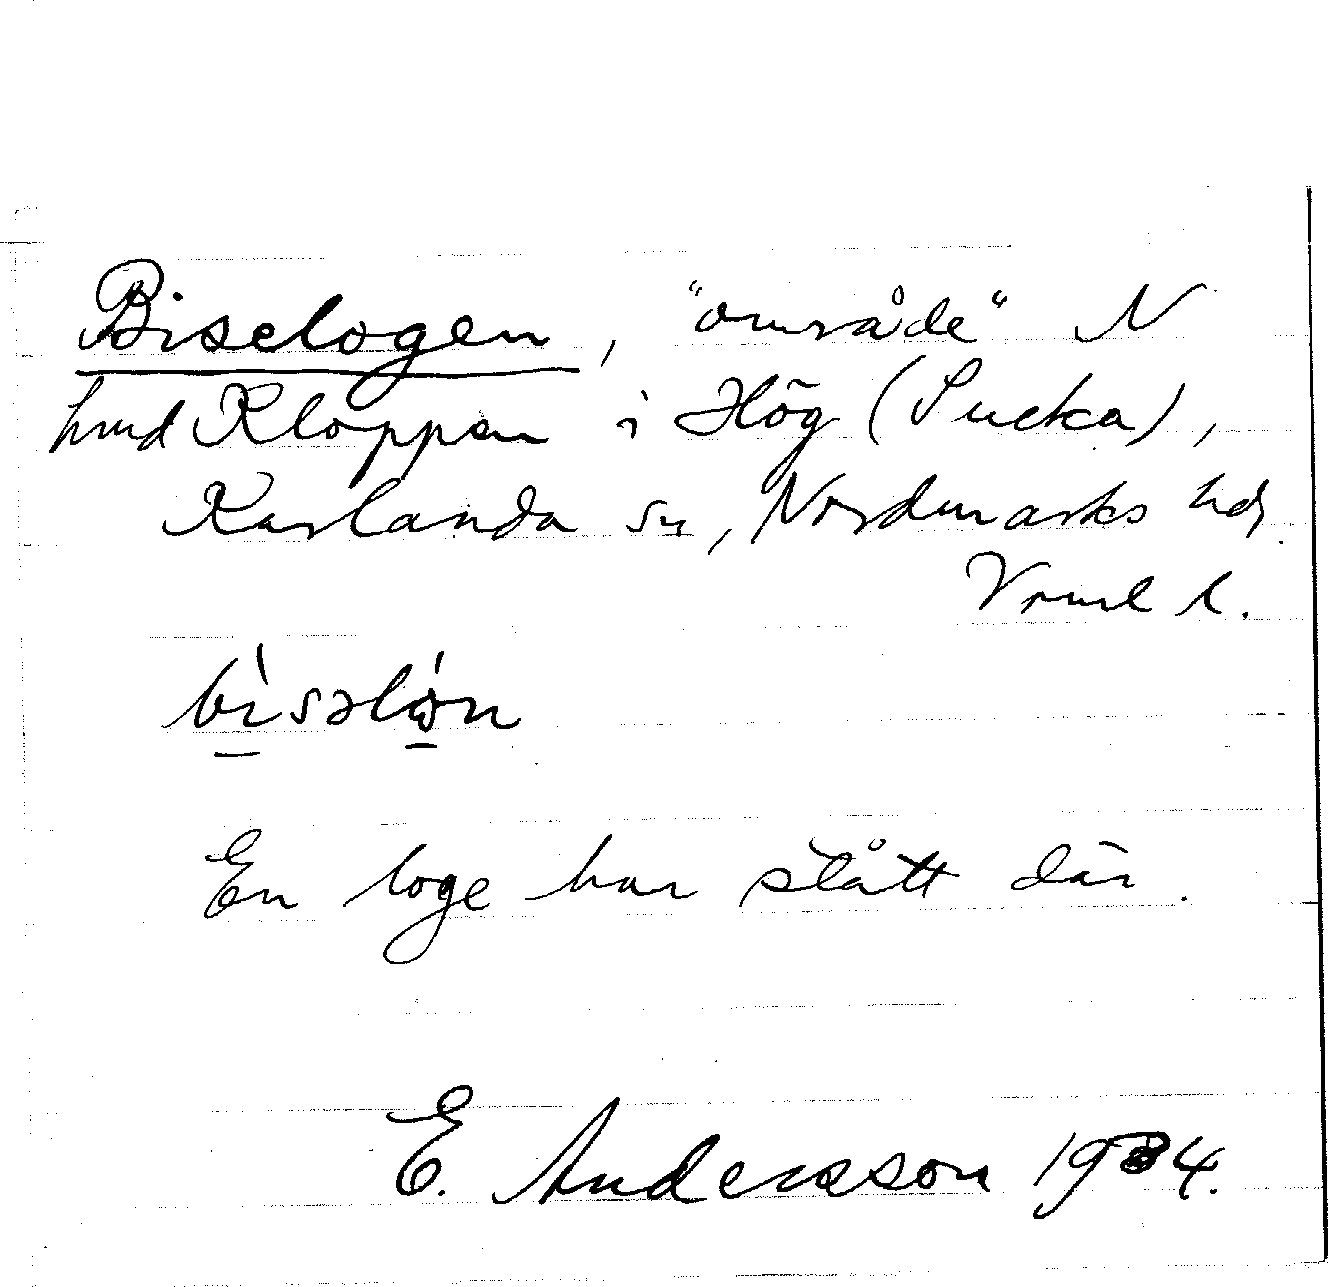 Biselogen, "område" N
hmd Kloppen i Hög (Sucka),
Karlanda sn, Nordmarks hd,
Vrml l.
En loge har stått där.
E. Andersson 1934.